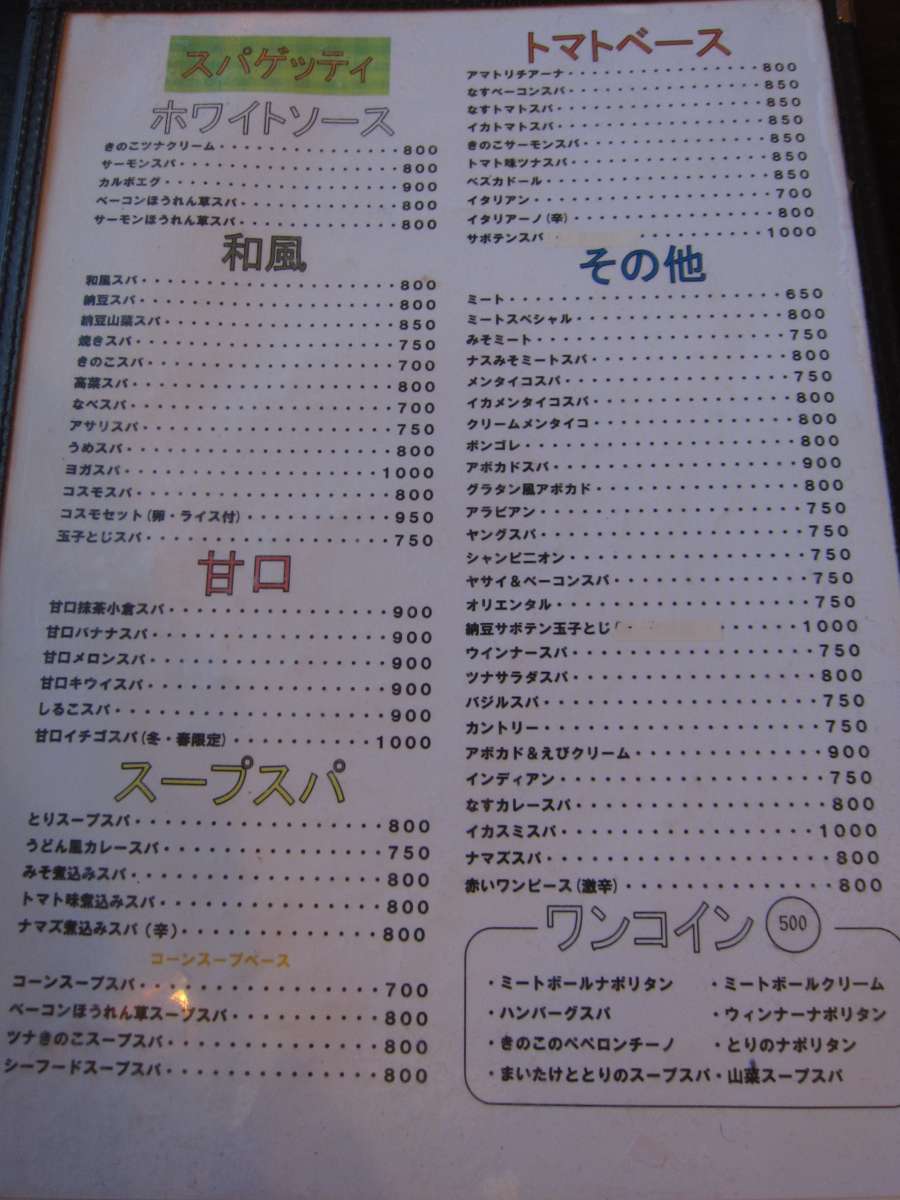 スパゲッティ
ホワイトソース
きのこツナクリーム・・・・・・・・・・・・・・・800
サーモンスパ・・・・・・・・・・・・・・・・・800
カルボエグ・・・・・・・・・・・・・・・・・・900
ベーコンほうれん草スパ・・・・・・・・・・・・800
サーモンほうれん草スパ・・・・・・・・・・・・800
和風
和風スパ・・・・・・・・・・・・・・・・・・・800
納豆スパ・・・・・・・・・・・・・・・・・・・800
納豆山菜スパ・・・・・・・・・・・・・・・・・850
焼きスパ・・・・・・・・・・・・・・・・・・・750
きのこスパ・・・・・・・・・・・・・・・・・・700
高菜スパ・・・・・・・・・・・・・・・・・・・800
なべスパ・・・・・・・・・・・・・・・・・・・700
アサリスパ・・・・・・・・・・・・・・・・・・750
うめスパ・・・・・・・・・・・・・・・・・・・800
ヨガスパ・・・・・・・・・・・・・・・・・・1000
コスモスパ・・・・・・・・・・・・・・・・・・800
コスモセット(卵・ライス付)・・・・・・・・・・・950
玉子とじスパ・・・・・・・・・・・・・・・・・750
甘口
甘口抹茶小倉スパ・・・・・・・・・・・・・・・900
甘口バナナスパ・・・・・・・・・・・・・・・・900
甘口メロンスパ・・・・・・・・・・・・・・・・900
甘口キウイスパ・・・・・・・・・・・・・・・・900
しるこスパ・・・・・・・・・・・・・・・・・・900
甘口イチゴスパ(冬・春限定)・・・・・・・・・・1000
スープスパ
とりスープスパ・・・・・・・・・・・・・・・・800
うどん風カレースパ・・・・・・・・・・・・・・750
みそ煮込みスパ・・・・・・・・・・・・・・・・800
トマト味煮込みスパ・・・・・・・・・・・・・・800
ナマズ煮込みスパ(辛)・・・・・・・・・・・・・800
コーンスープベース
コーンスープスパ・・・・・・・・・・・・・・・700
ベーコンほうれん草スープスパ・・・・・・・・・800
ツナきのこスープスパ・・・・・・・・・・・・・800
シーフードスープスパ・・・・・・・・・・・・・800
トマトベース
アマトリチアーナ・・・・・・・・・・・・・・・800
なすベーコンスパ・・・・・・・・・・・・・・・850
なすトマトスパ・・・・・・・・・・・・・・・・850
イカトマトスパ・・・・・・・・・・・・・・・・850
きのこサーモンスパ・・・・・・・・・・・・・・850
トマト味ツナスパ・・・・・・・・・・・・・・・850
ペズカドール・・・・・・・・・・・・・・・・・850
イタリアン・・・・・・・・・・・・・・・・・・700
イタリアーノ(辛)・・・・・・・・・・・・・・・800
サボテンスパ・・・・・・・・1000
その他
ミート・・・・・・・・・・・・・・・・・・・・650
ミートスペシャル・・・・・・・・・・・・・・・800
みそミート・・・・・・・・・・・・・・・・・・750
ナスみそミートスパ・・・・・・・・・・・・・・800
メンタイコスパ・・・・・・・・・・・・・・・・750
イカメンタイコスパ・・・・・・・・・・・・・・800
クリームメンタイコ・・・・・・・・・・・・・・800
ボンゴレ・・・・・・・・・・・・・・・・・・・800
アボカドスパ・・・・・・・・・・・・・・・・・900
グラタン風アボカド・・・・・・・・・・・・・・800
アラビアン・・・・・・・・・・・・・・・・・・750
ヤングスパ・・・・・・・・・・・・・・・・・・750
シャンピニオン・・・・・・・・・・・・・・・・750
ヤサイ&ベーコンスパ・・・・・・・・・・・・・750
オリエンタル・・・・・・・・・・・・・・・・・750
納豆サボテン玉子とじ・・・・・1000
ウインナースパ・・・・・・・・・・・・・・・・750
ツナサラダスパ・・・・・・・・・・・・・・・・800
バジルスパ・・・・・・・・・・・・・・・・・・750
カントリー・・・・・・・・・・・・・・・・・・750
アボカド&えびクリーム・・・・・・・・・・・・900
インディアン・・・・・・・・・・・・・・・・・750
なすカレースパ・・・・・・・・・・・・・・・・800
イカスミスパ・・・・・・・・・・・・・・・・1000
ナマズスパ・・・・・・・・・・・・・・・・・・800
赤いワンピース(激辛)・・・・・・・・・・・・・800
ワンコイン 500
・ミートボールナポリタン ・ミートボールクリーム
・ハンバーグスパ ・ウィンナーナポリタン
・きのこのペペロンチーノ ・とりのナポリタン
・まいたけととりのスープスパ・山菜スープスパ